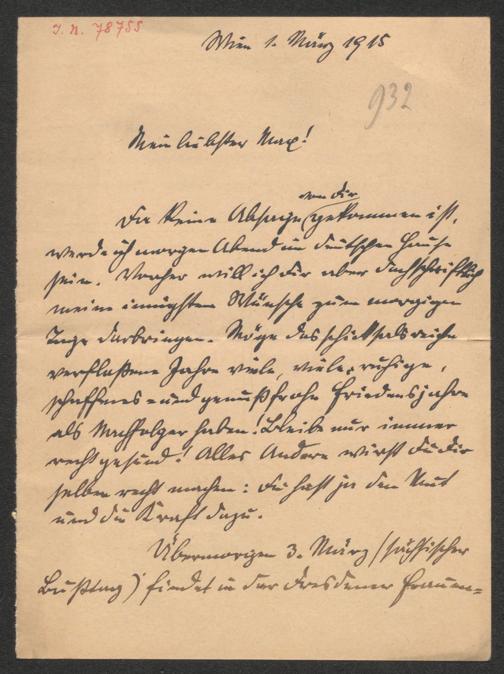 I. N. 78755
Wien 1. März 1915
932
Mein liebster Max!
von Dir
Da keine Absage gekommen ist,
werde ich morgen Abend im Deutschen Hause
sein. Vorher will ich Dir aber doch schriftlich
meine innigsten Wünsche zum morgigen
Tage darbringen. Möge das schicksalsreiche
verflossene Jahre viele, viele, ruhige,
schaffens- und genußfrohe Friedensjahre
als Nachfolger haben! Bleibe nur immer
recht gesund! Alles Andere wirst Du Dir
selber recht machen: Du hast ja den Mut
und die Kraft dazu.
Übermorgen 3. März (sächsischer
Bußtag) findet in der Dresdener Frauen=